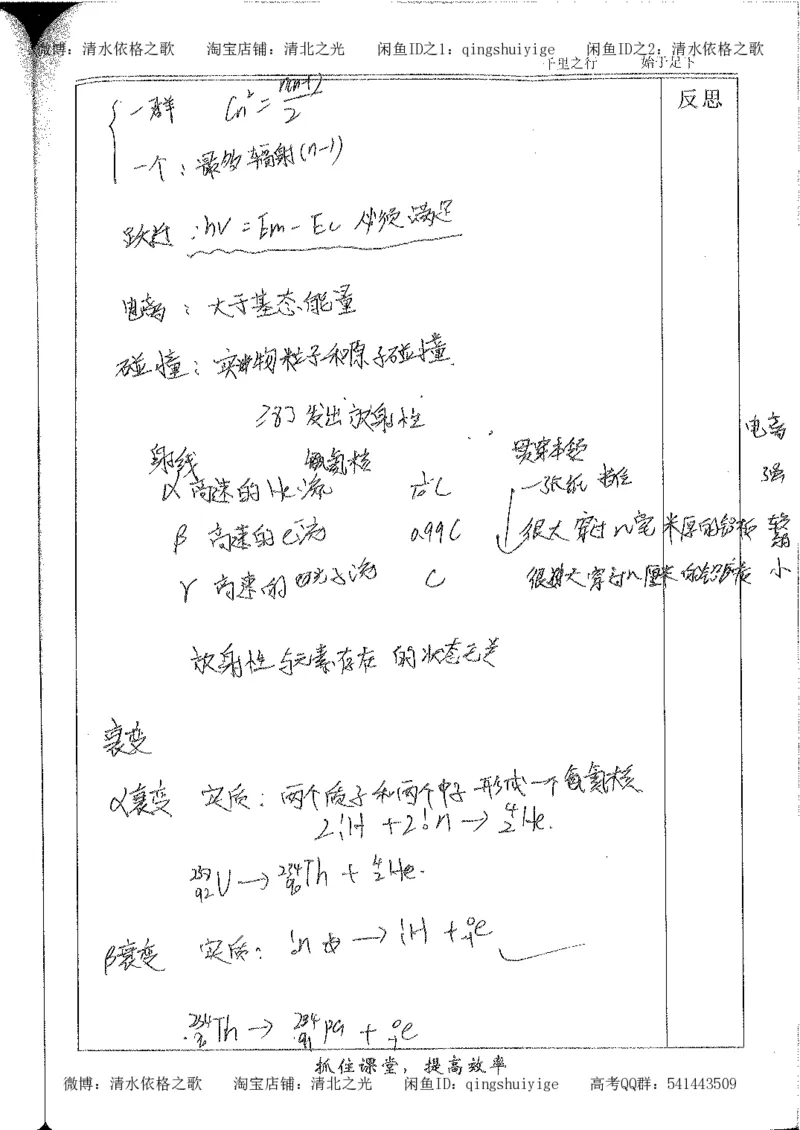 微博：清水依格之歌 淘宝店铺：清北之光 闲鱼ID之1：qingshuiyige 闲鱼ID之2：清水依格之歌
千里之行 始于足下
反思
一群 Cn²=n(n-1)/2
一个：最多辐射(n-1)
跃迁：hν=Em-En 必须满足
电离：大于基态能量
碰撞：实物粒子和原子碰撞
≥83 发出放射性
射线 氦核 贯穿本领 电离
α 高速的He流 1/10C 一张纸挡住 强
β 高速的e流 0.99C 很大 穿过n毫米厚的铝板 较弱
γ 高速的光子流 C 很大 穿过n厘米的铅板 小
放射性与元素存在的状态无关
衰变
α衰变 实质：两个质子和两个中子形成一个氦核
2¹₁H + 2¹₀n → ⁴₂He.
₉₂U → ²³⁴₉₀Th + ⁴₂He.
β衰变 实质：¹₀n → ¹₁H + ⁰₋₁e
²³⁴₉₀Th → ²³⁴₉₁Pa + ⁰₋₁e
抓住课堂，提高效率
微博：清水依格之歌 淘宝店铺：清北之光 闲鱼ID：qingshuiyige 高考QQ群：541443509